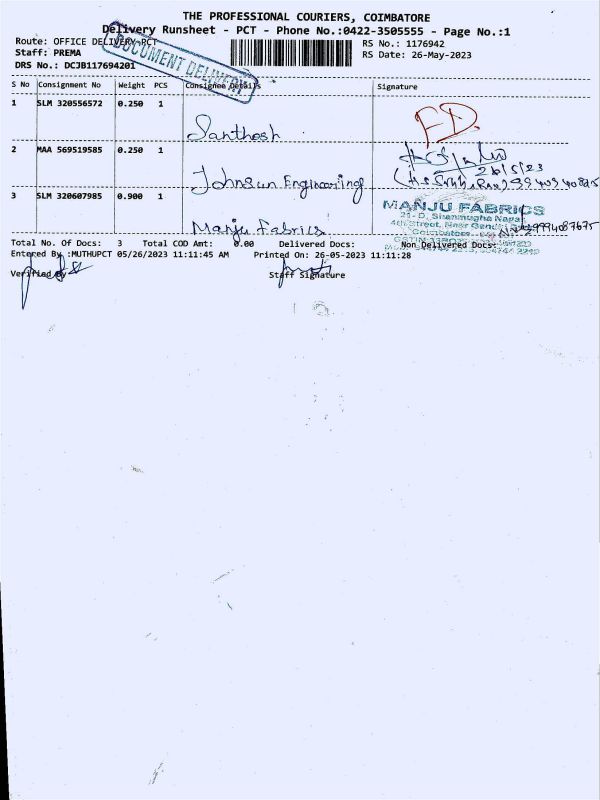 THE PROFESSIONAL COURIERS, COIMBATORE
Delivery Runsheet - PCT - Phone No.:0422-3505555 - Page No.:1
Route: OFFICE DELIVERY-PCT
RS No.: 1176942
Staff: PREMA
RS Date: 26-May-2023
DRS No.: DCJB117694201
DOCUMENT DELIVERY
S No Consignment No Weight PCS Consignee Details Signature
1 SLM 320556572 0.250 1 Santhosh FD.
2 MAA 569519585 0.250 1 Johnsun Engineering
26/5/23
3 SLM 320607985 0.900 1 Manju Fabrics
MANJU FABRICS
21-D, Shanmugha Nagar
4th Street, Near Gandhi
Coimbatore
9994087675
Total No. Of Docs: 3 Total COD Amt: 0.00 Delivered Docs: Non Delivered Docs:
Entered By :MUTHUPCT 05/26/2023 11:11:45 AM Printed On: 26-05-2023 11:11:28
Verified By Staff Signature